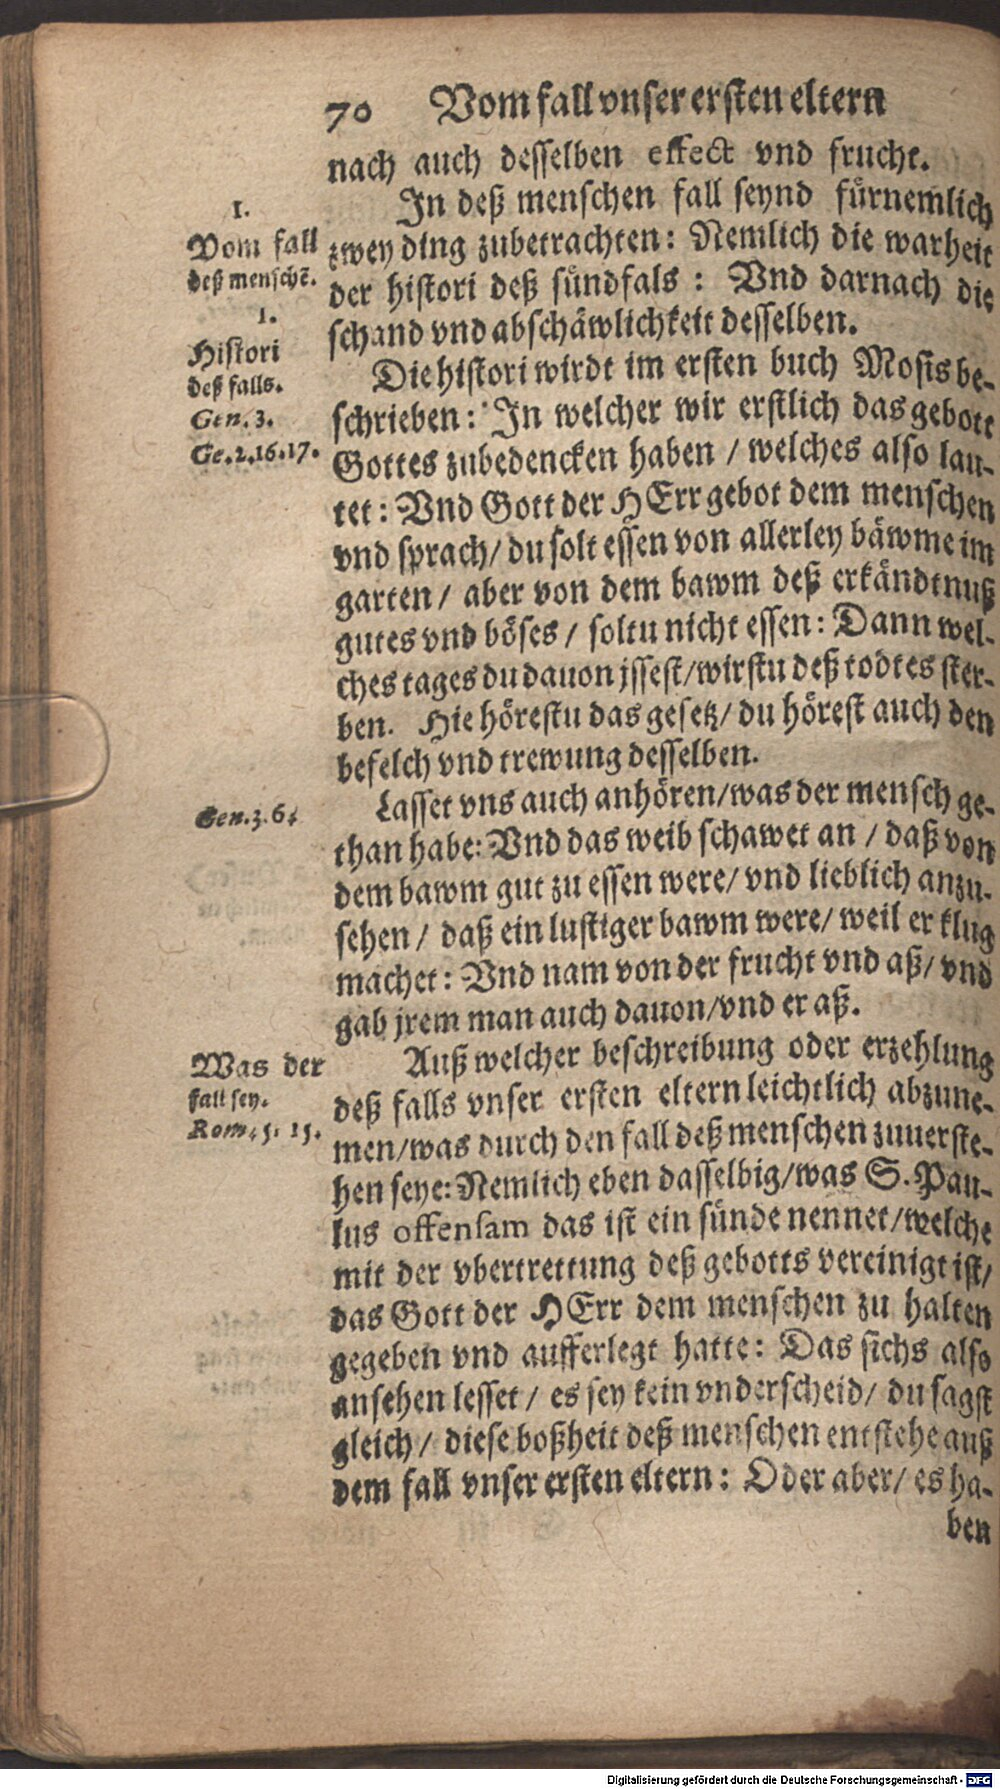 70 Vom fall vnser ersten eltern
nach auch desselben effect vnd frucht.
In deß menschen fall seynd fürnemlich
zwey ding zubetrachten: Nemlich die warheit
der histori deß sündfals: Vnd darnach die
schand vnd abschäwlichkeit desselben.
Die histori wirdt im ersten buch Mosis be-
schrieben: In welcher wir erstlich das gebott
Gottes zubedencken haben / welches also lau-
tet: Vnd Gott der HErr gebot dem menschen
vnd sprach/ du solt essen von allerley bäwme im
garten/ aber von dem bawm deß erkändtnuß
gutes vnd böses/ soltu nicht essen: Dann wel-
ches tages du dauon jssest/wirstu deß todtes ster-
ben. Hie hörestu das gesetz/ du hörest auch den
befelch vnd trewung desselben.
Lasset vns auch anhören/was der mensch ge-
than habe: Vnd das weib schawet an / daß von
dem bawm gut zu essen were/ vnd lieblich anzu-
sehen/ daß ein lustiger bawm were/ weil er klug
machet: Vnd nam von der frucht vnd aß/ vnd
gab jrem man auch dauon/vnd er aß.
Auß welcher beschreibung oder erzehlung
deß falls vnser ersten eltern leichtlich abzune-
men/was durch den fall deß menschen zuuerste-
hen seye: Nemlich eben dasselbig/was S. Pau-
lus offensam das ist ein sünde nennet/welche
mit der vbertrettung deß gebotts vereinigt ist/
das Gott der HErr dem menschen zu halten
gegeben vnd aufferlegt hatte: Das sichs also
ansehen lesset/ es sey kein vnderscheid/ du sagst
gleich/ diese boßheit deß menschen entstehe auß
dem fall vnser ersten eltern: Oder aber/ es ha-
ben
1.
Vom fall
deß menschẽ.
1.
Histori
deß falls.
Gen. 3.
Ge.2.16.17.
Gen.3.6.
Was der
fall sey.
Rom. 5. 15.
Digitalisierung gefördert durch die Deutsche Forschungsgemeinschaft - DFG